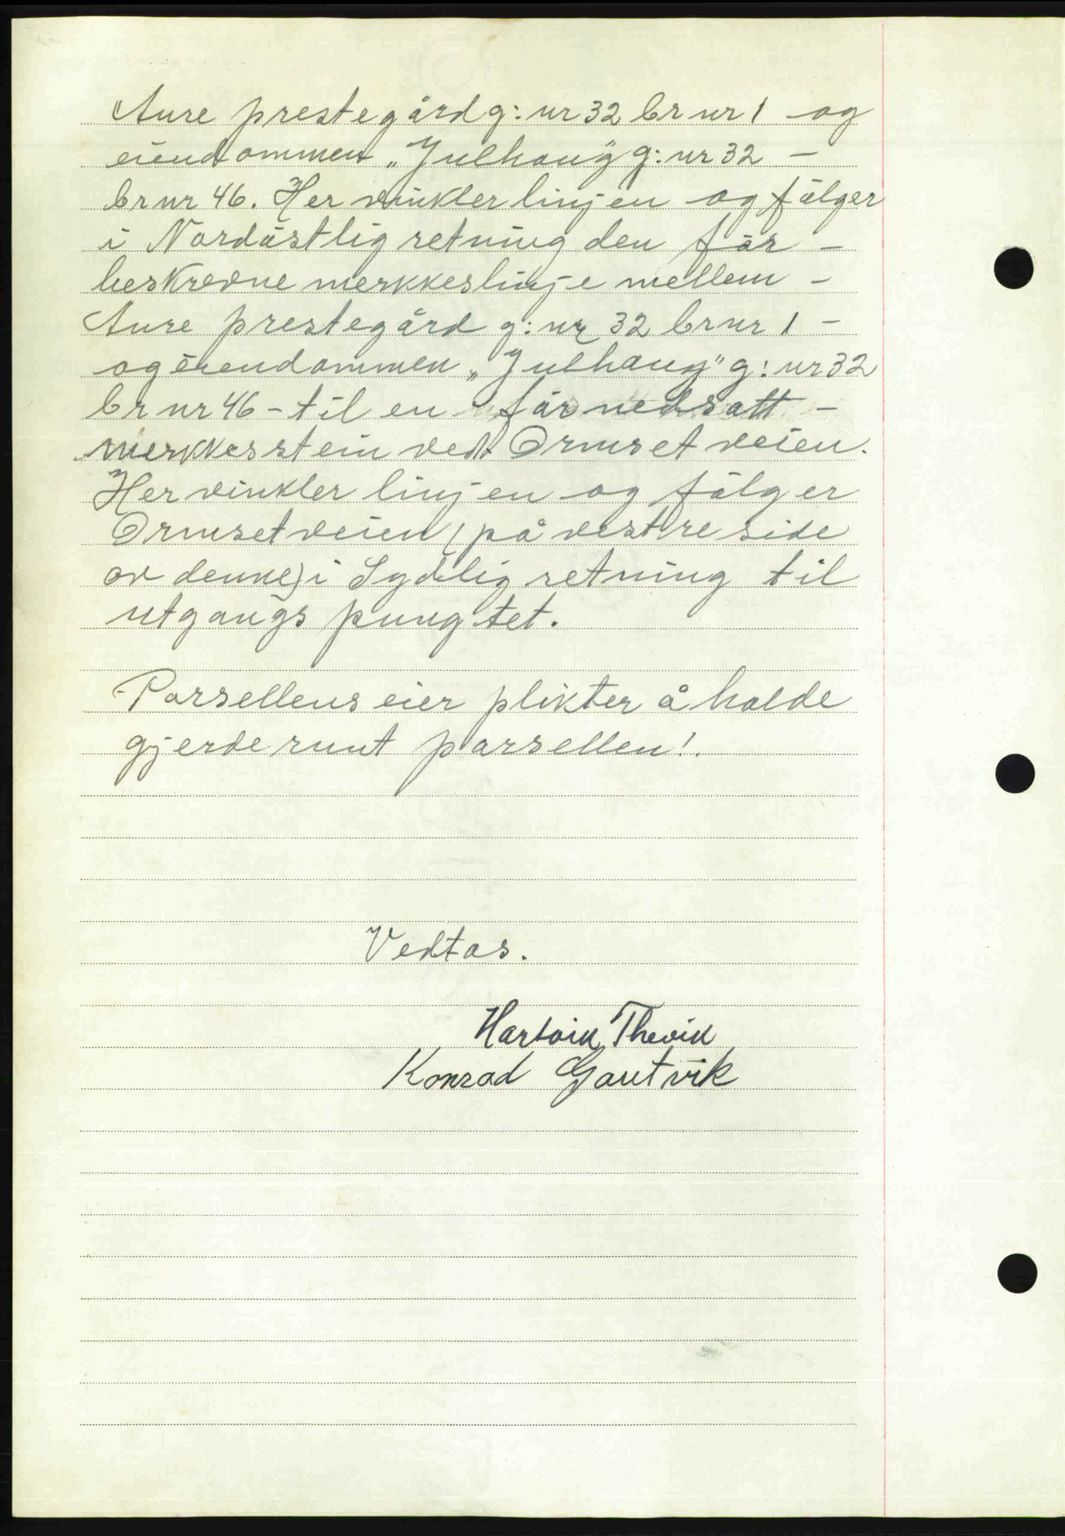 Aure prestegård g: nr 32 br nr 1 og
eiendommen „Julhaug" g: nr 32 –
br nr 46. Her vinkler linjen og fälger
i Nordästlig retning den fär –
beskrevne merkkeslinje mellem –
Aure prestegård g: nr 32 br nr 1 –
og eiendommen „Julhaug" g: nr 32
br nr 46 – til en fär nedsatt –
merkkesstein ved Ormset veien.
Her vinkler linjen og fälger
Ormsetveien (på vestre side
av denne) i Sydlig retning til
utgangs pungtet.
Parsellens eier plikter å holde
gjerde runt parsellen!.
Vedtas.
Hartvik Thevik
Konrad Gautvik